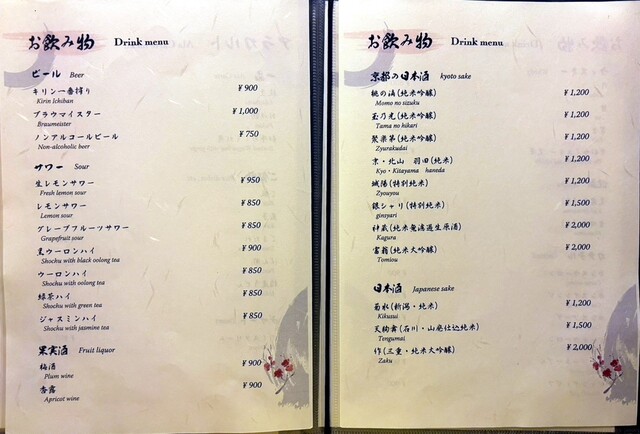 お飲み物 Drink menu
ビール Beer
キリン一番搾り ¥900
Kirin Ichiban
ブラウマイスター ¥1,000
Braumeister
ノンアルコールビール ¥750
Non-alcoholic beer
サワー Sour
生レモンサワー ¥950
Fresh lemon sour
レモンサワー ¥850
Lemon sour
グレープフルーツサワー ¥850
Grapefruit sour
黒ウーロンハイ ¥900
Shochu with black oolong tea
ウーロンハイ ¥850
Shochu with oolong tea
緑茶ハイ ¥850
Shochu with green tea
ジャスミンハイ ¥850
Shochu with jasmine tea
果実酒 Fruit liquor
梅酒 ¥900
Plum wine
杏露 ¥900
Apricot wine
お飲み物 Drink menu
京都の日本酒 kyoto sake
桃の滴(純米吟醸) ¥1,200
Momo no sizuku
玉乃光(純米吟醸) ¥1,200
Tama no hikari
聚楽第(純米吟醸) ¥1,200
Zyurakudai
京・北山 羽田(純米) ¥1,200
Kyo・Kitayama haneda
城陽(特別純米) ¥1,200
Zyouyou
銀シャリ(特別純米) ¥1,500
ginsyari
神蔵(純米無濾過生原酒) ¥2,000
Kagura
富翁(純米大吟醸) ¥2,000
Tomiou
日本酒 Japanese sake
菊水(新潟・純米) ¥1,200
Kikusui
天狗舞(石川・山廃仕込純米) ¥1,500
Tengumai
作(三重・純米大吟醸) ¥2,000
Zaku